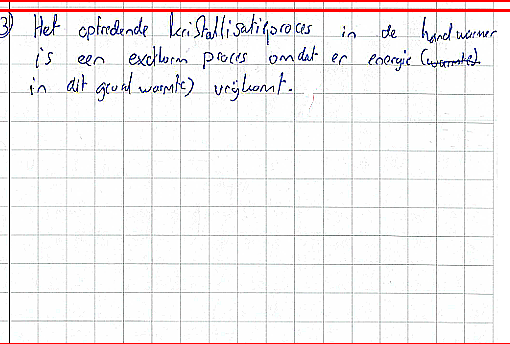 3) Het optredende kristallisatieproces in de handwarmer
is een exotherm proces omdat er energie (warmte)
in dit geval warmte) vrijkomt.